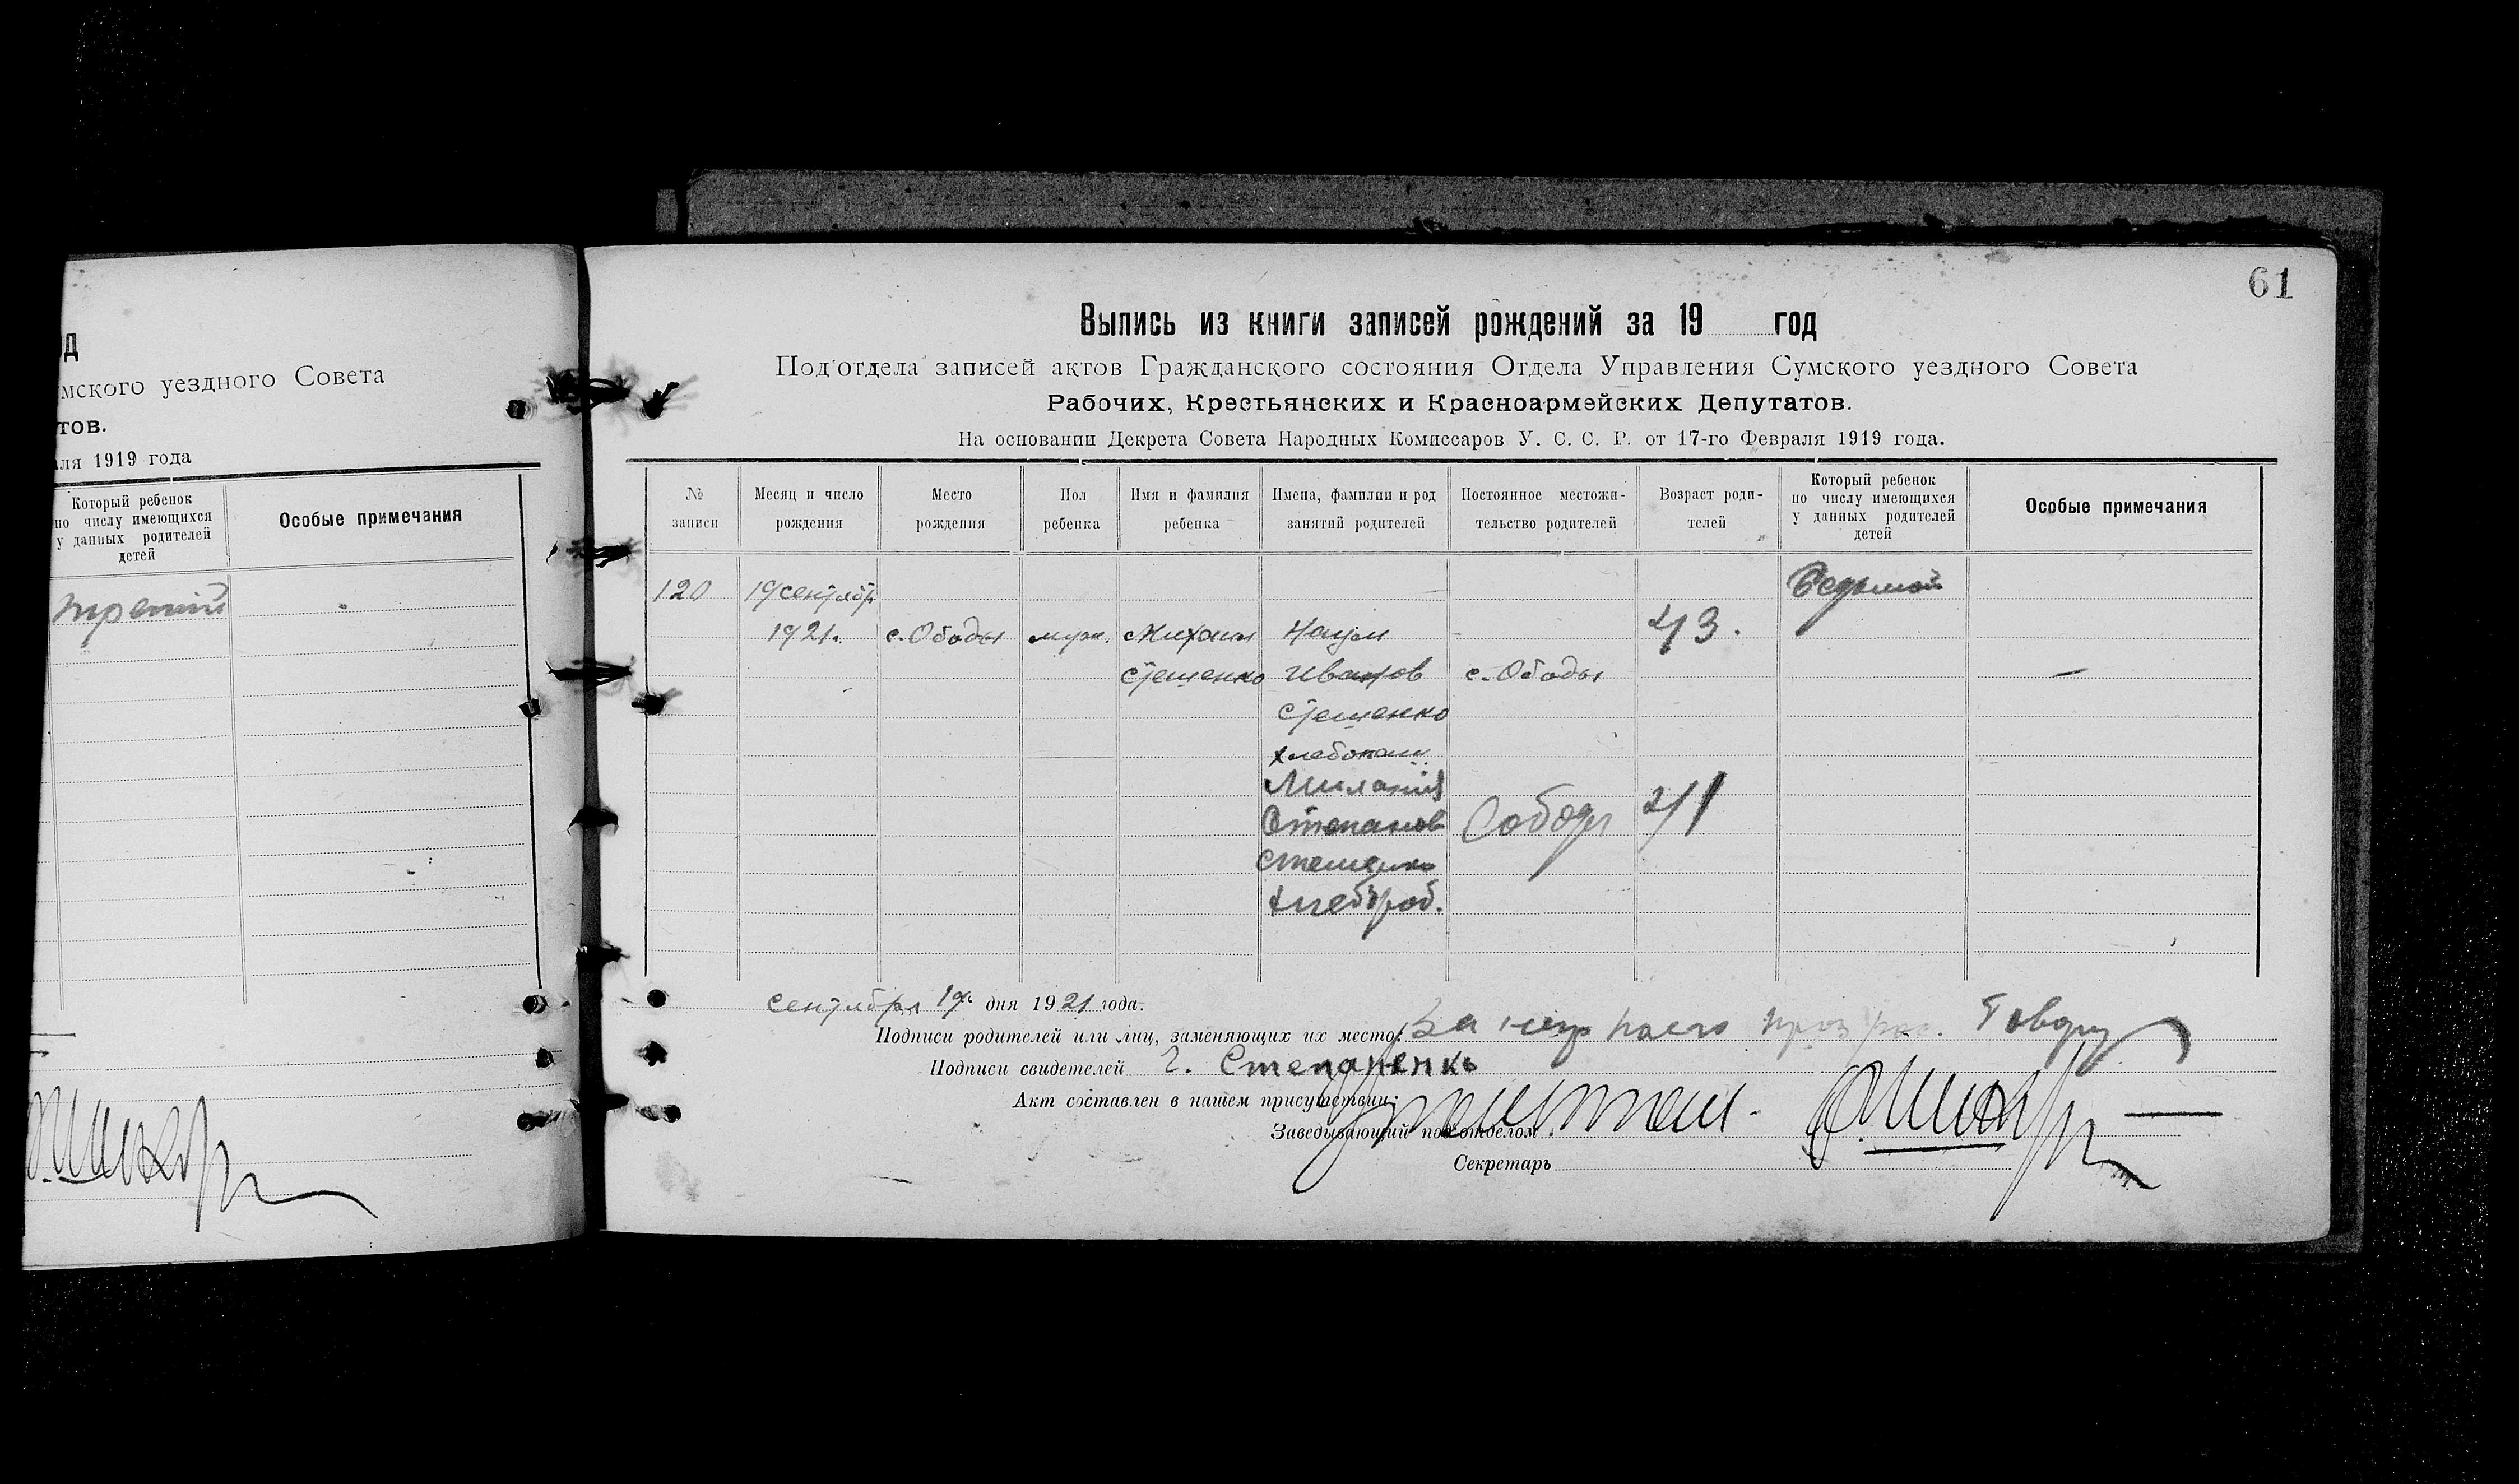 д
мского уездного Совета
тов.
ля 1919 года
Который ребенок
по числу имеющихся
у данных родителей
детей
Особые примечания
третий
61
Выпись из книги записей рождений за 19 год
Под'отдела записей актов Гражданского состояния Отдела Управления Сумского уездного Совета
Рабочих, Крестьянских и Красноармейских Депутатов.
На основании Декрета Совета Народных Комиссаров У. С. С. Р. от 17-го Февраля 1919 года.
№
записи
Месяц и число
рождения
Место
рождения
Пол
ребенка
Имя и фамилия
ребенка
Имена, фамилии и род
занятий родителей
Постоянное местожи-
тельство родителей
Возраст роди-
телей
Который ребенок
по числу имеющихся
у данных родителей
детей
Особые примечания
120
19 сентябр
1921г.
с. Ободы
муж.
Михаил
Стешенко
Наум
Иванов
Стешенко
хлебопаш.
с. Ободы
43.
Седьмой
—
Милания
Степанов
Стешенко
хлебороб.
С ободы
сентября 19 дня 1921 года.
Подписи родителей или лиц, заменяющих их место: За
Подписи свидетелей Г. Степаненкь
Акт составлен в нашем присутствии:
Заведывающий под'отделом
Секретарь